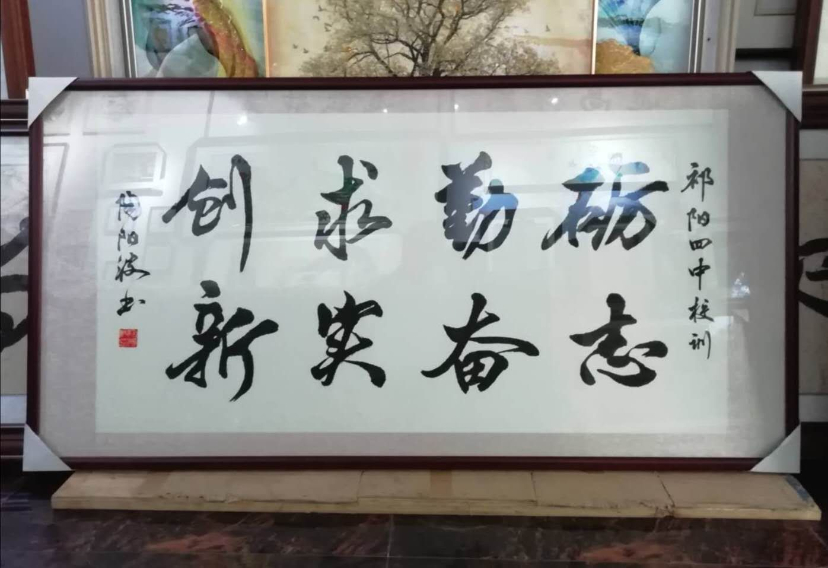 祁阳四中校训
砺志
勤奋
求实
创新
陶阳波书